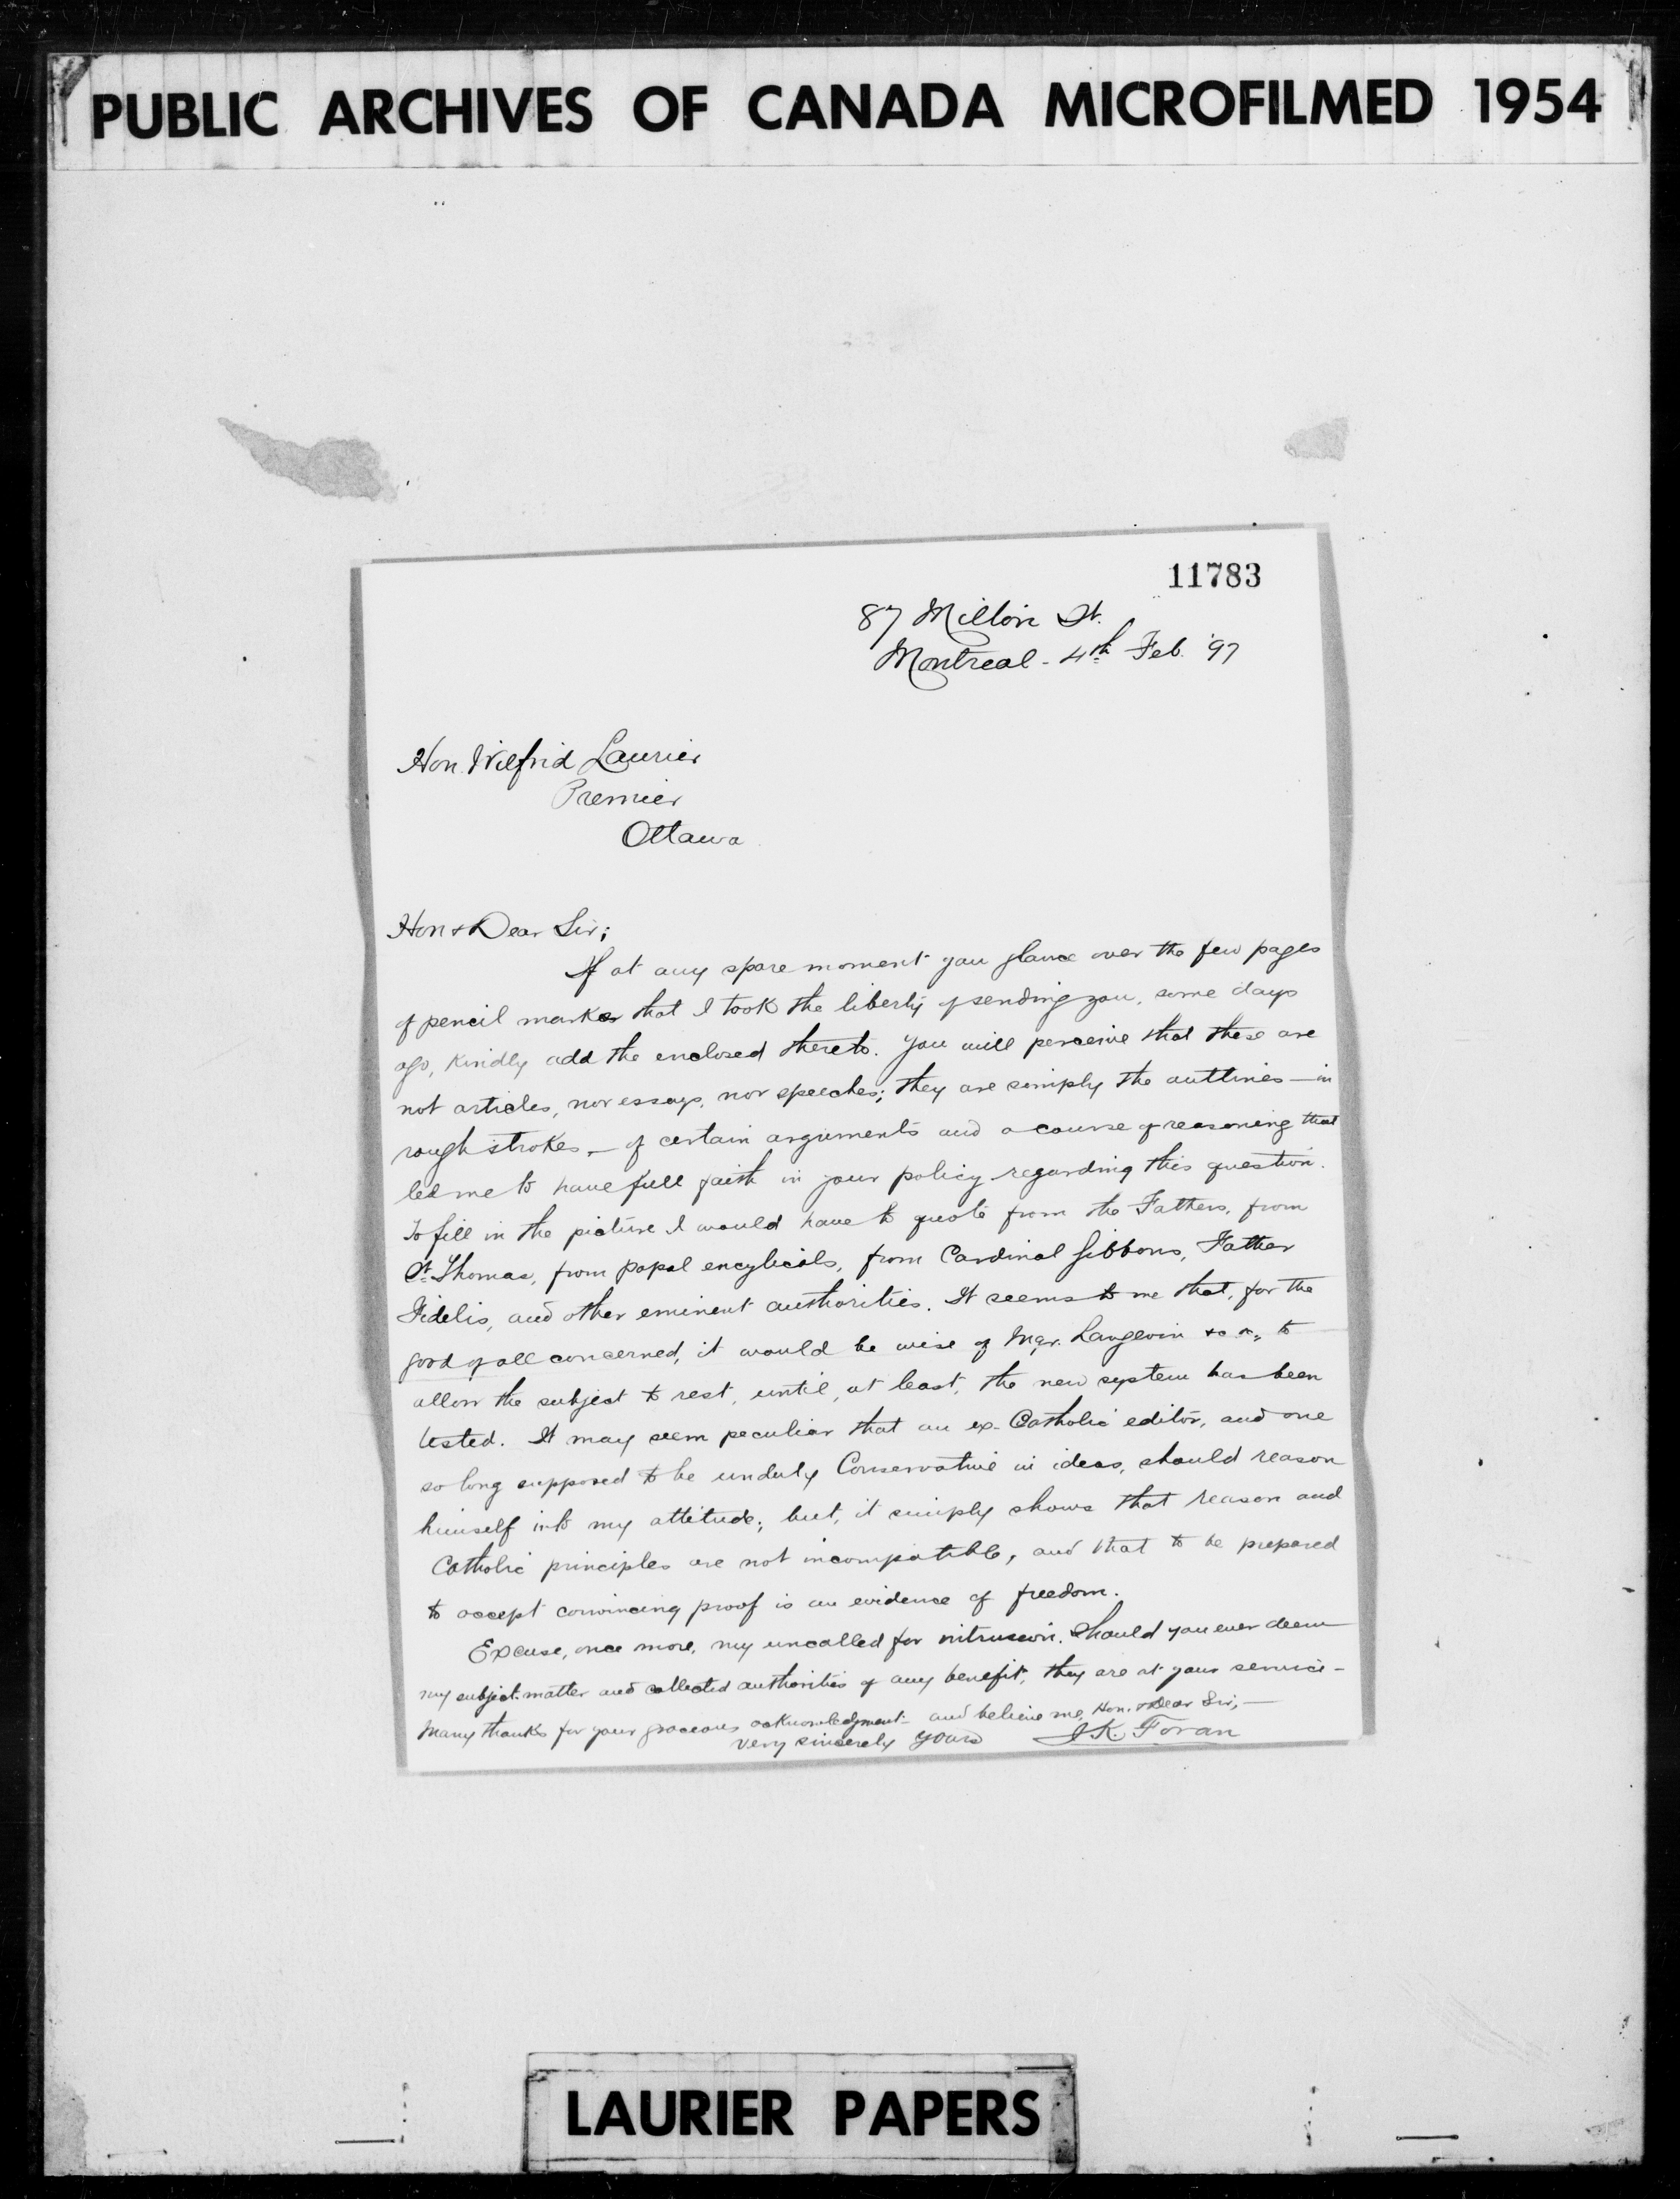 PUBLIC ARCHIVES OF CANADA MICROFILMED 1954
11783
87 Milton St.
Montreal - 4th Feb. '97
Hon. Wilfrid Laurier
Premier
Ottawa
Hon & Dear Sir;
If at any spare moment you glance over the few pages
of pencil marks that I took the liberty of sending you, some days
ago, kindly add the enclosed thereto. You will perceive that these are
not articles, nor essays, nor speeches; they are simply the outlines — in
rough strokes, — of certain arguments and a course of reasoning that
led me to have full faith in your policy regarding this question.
To fill in the picture I would have to quote from the Fathers, from
St. Thomas, from papal encylicals, from Cardinal Gibbons, Father
Fidelis, and other eminent authorities. It seems to me that, for the
good of all concerned, it would be wise of Mgr. Langevin &c &c, to
allow the subject to rest, until, at least, the new system has been
tested. It may seem peculiar that an ex-Catholic editor, and one
so long supposed to be unduly Conservative in ideas, should reason
himself into my attitude; but, it simply shows that reason and
Catholic principles are not incompatible, and that to be prepared
to accept convincing proof is an evidence of freedom.
Excuse, once more, my uncalled for intrusion. Should you ever deem
my subject-matter and collected authorities of any benefit, they are at your service -
Many thanks for your gracious acknowledgment - and believe me, Hon. & Dear Sir, —
Very sincerely yours J.K. Foran
LAURIER PAPERS